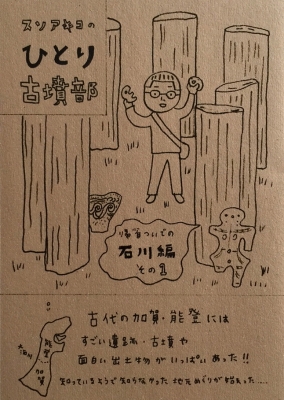 スソアキコの
ひとり
古墳部
帰省ついでの
石川編
その1
能登
加賀
古代の加賀・能登には
すごい遺跡・古墳や
面白い出土物がいっぱいあった!!
知っているようで知らなかった 地元めぐりが始まった……